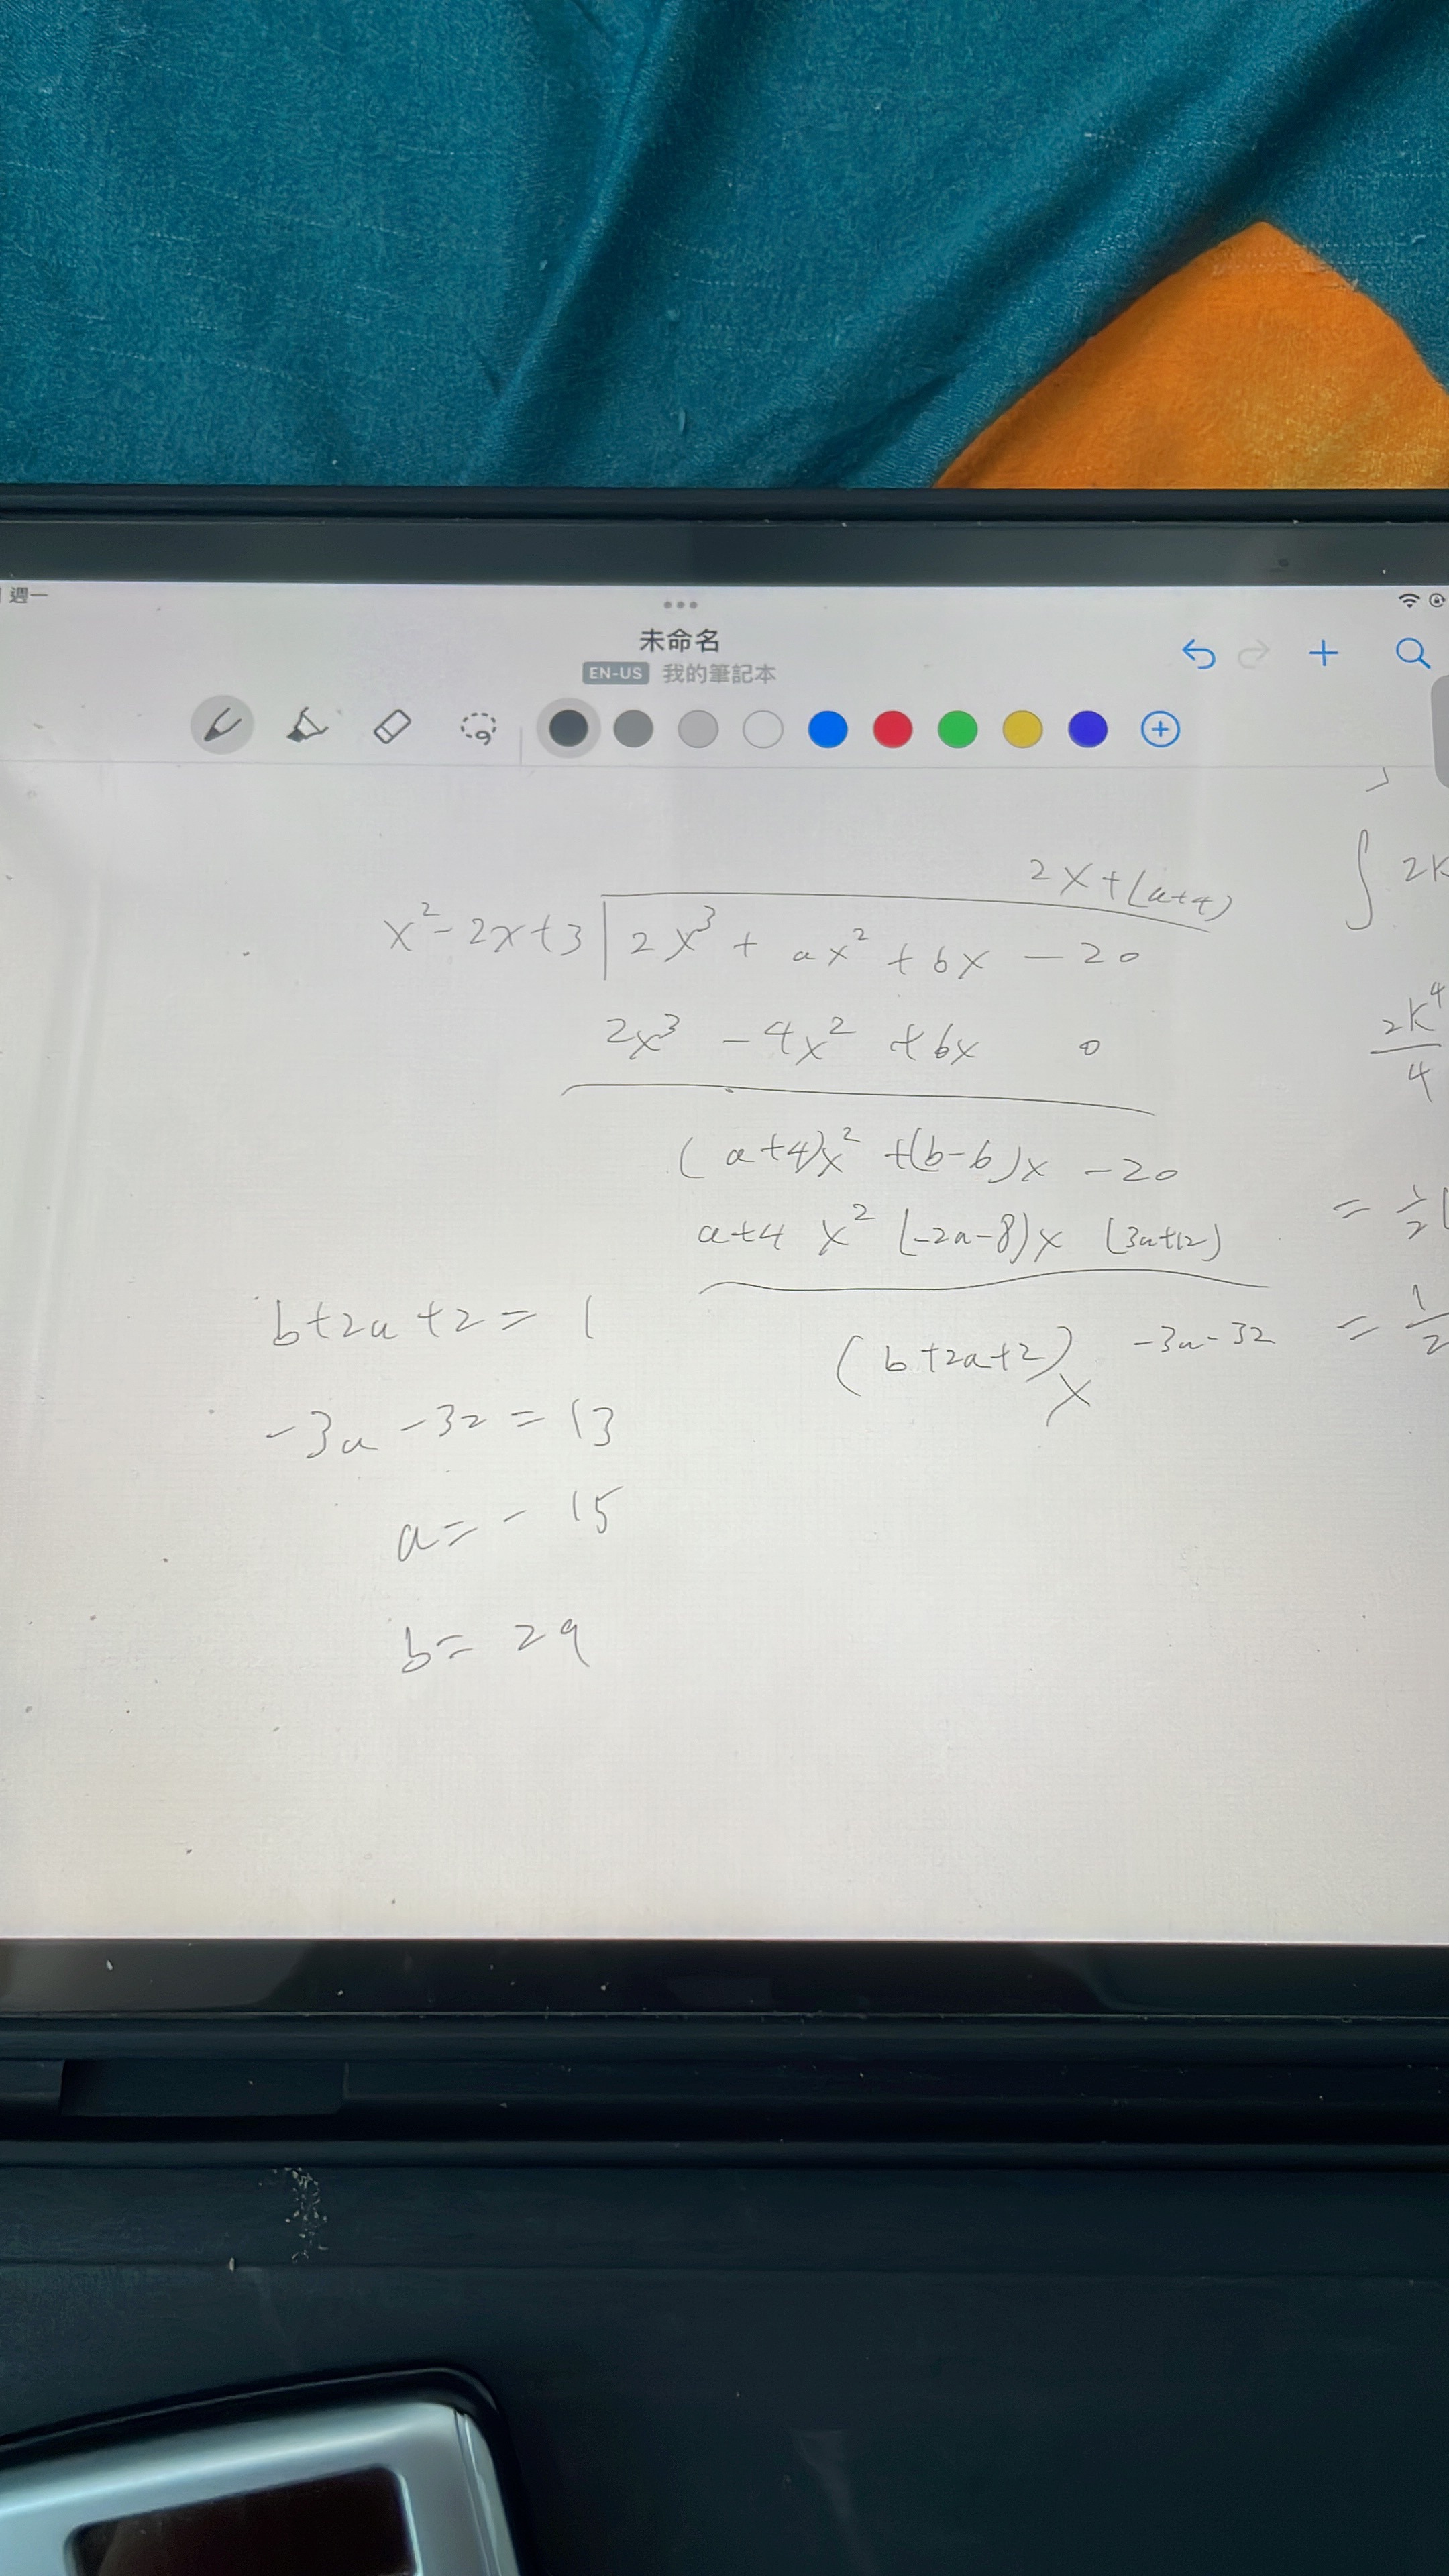 週一
未命名
EN-US 我的筆記本
2x+(a+4)
x²-2x+3 2x³ + ax² + bx - 20
2x³ - 4x² + 6x 0
(a+4)x² +(b-6)x -20
a+4 x² (-2a-8)x (3a+12)
(b+2a+2)x -3a-32
b+2a+2= 1
-3a-32=13
a=-15
b= 29
∫ 2k
2k⁴
4
= 1/2
= 1/2